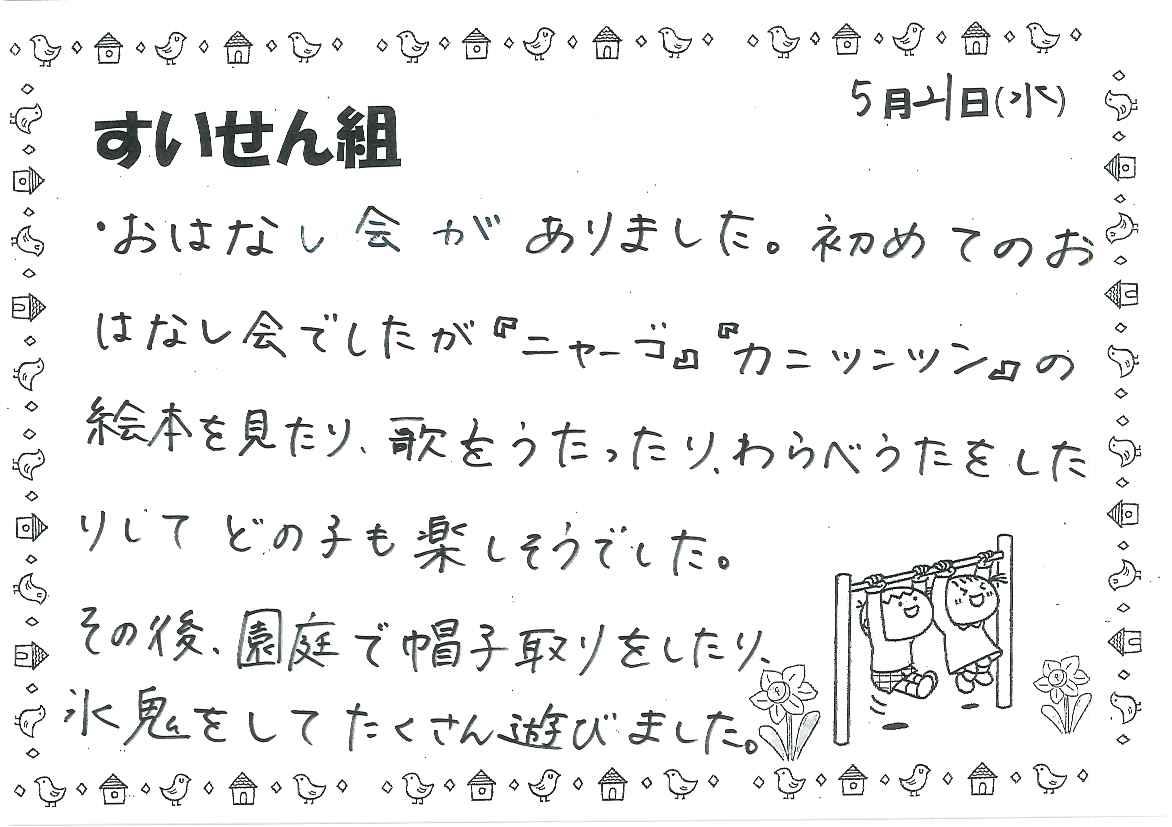 5月21日(水)
すいせん組
・おはなし会が ありました。初めてのお
はなし会でしたが『ニャーゴ』『カニツンツン』の
絵本を見たり、歌をうたったり、わらべうたをした
りして どの子も楽しそうでした。
その後、園庭で帽子取りをしたり、
氷鬼をしてたくさん遊びました。